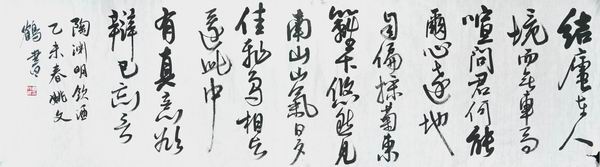 結廬在人
境而無車馬
喧問君何能
爾心遠地
自偏採菊東
籬下悠然見
南山山氣日夕
佳飛鳥相與
還此中
有真意欲
辯已忘言
陶淵明飲酒
乙未春姚文
鶴書